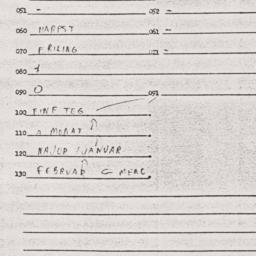 051 - 052 -
060 HARPST 061 -
070 FRILING 071 -
080 1
090 0 091
100 FINE TEG
110 A MORAT
120 NAJUP JANUAR
130 FEBRUAR C MERC